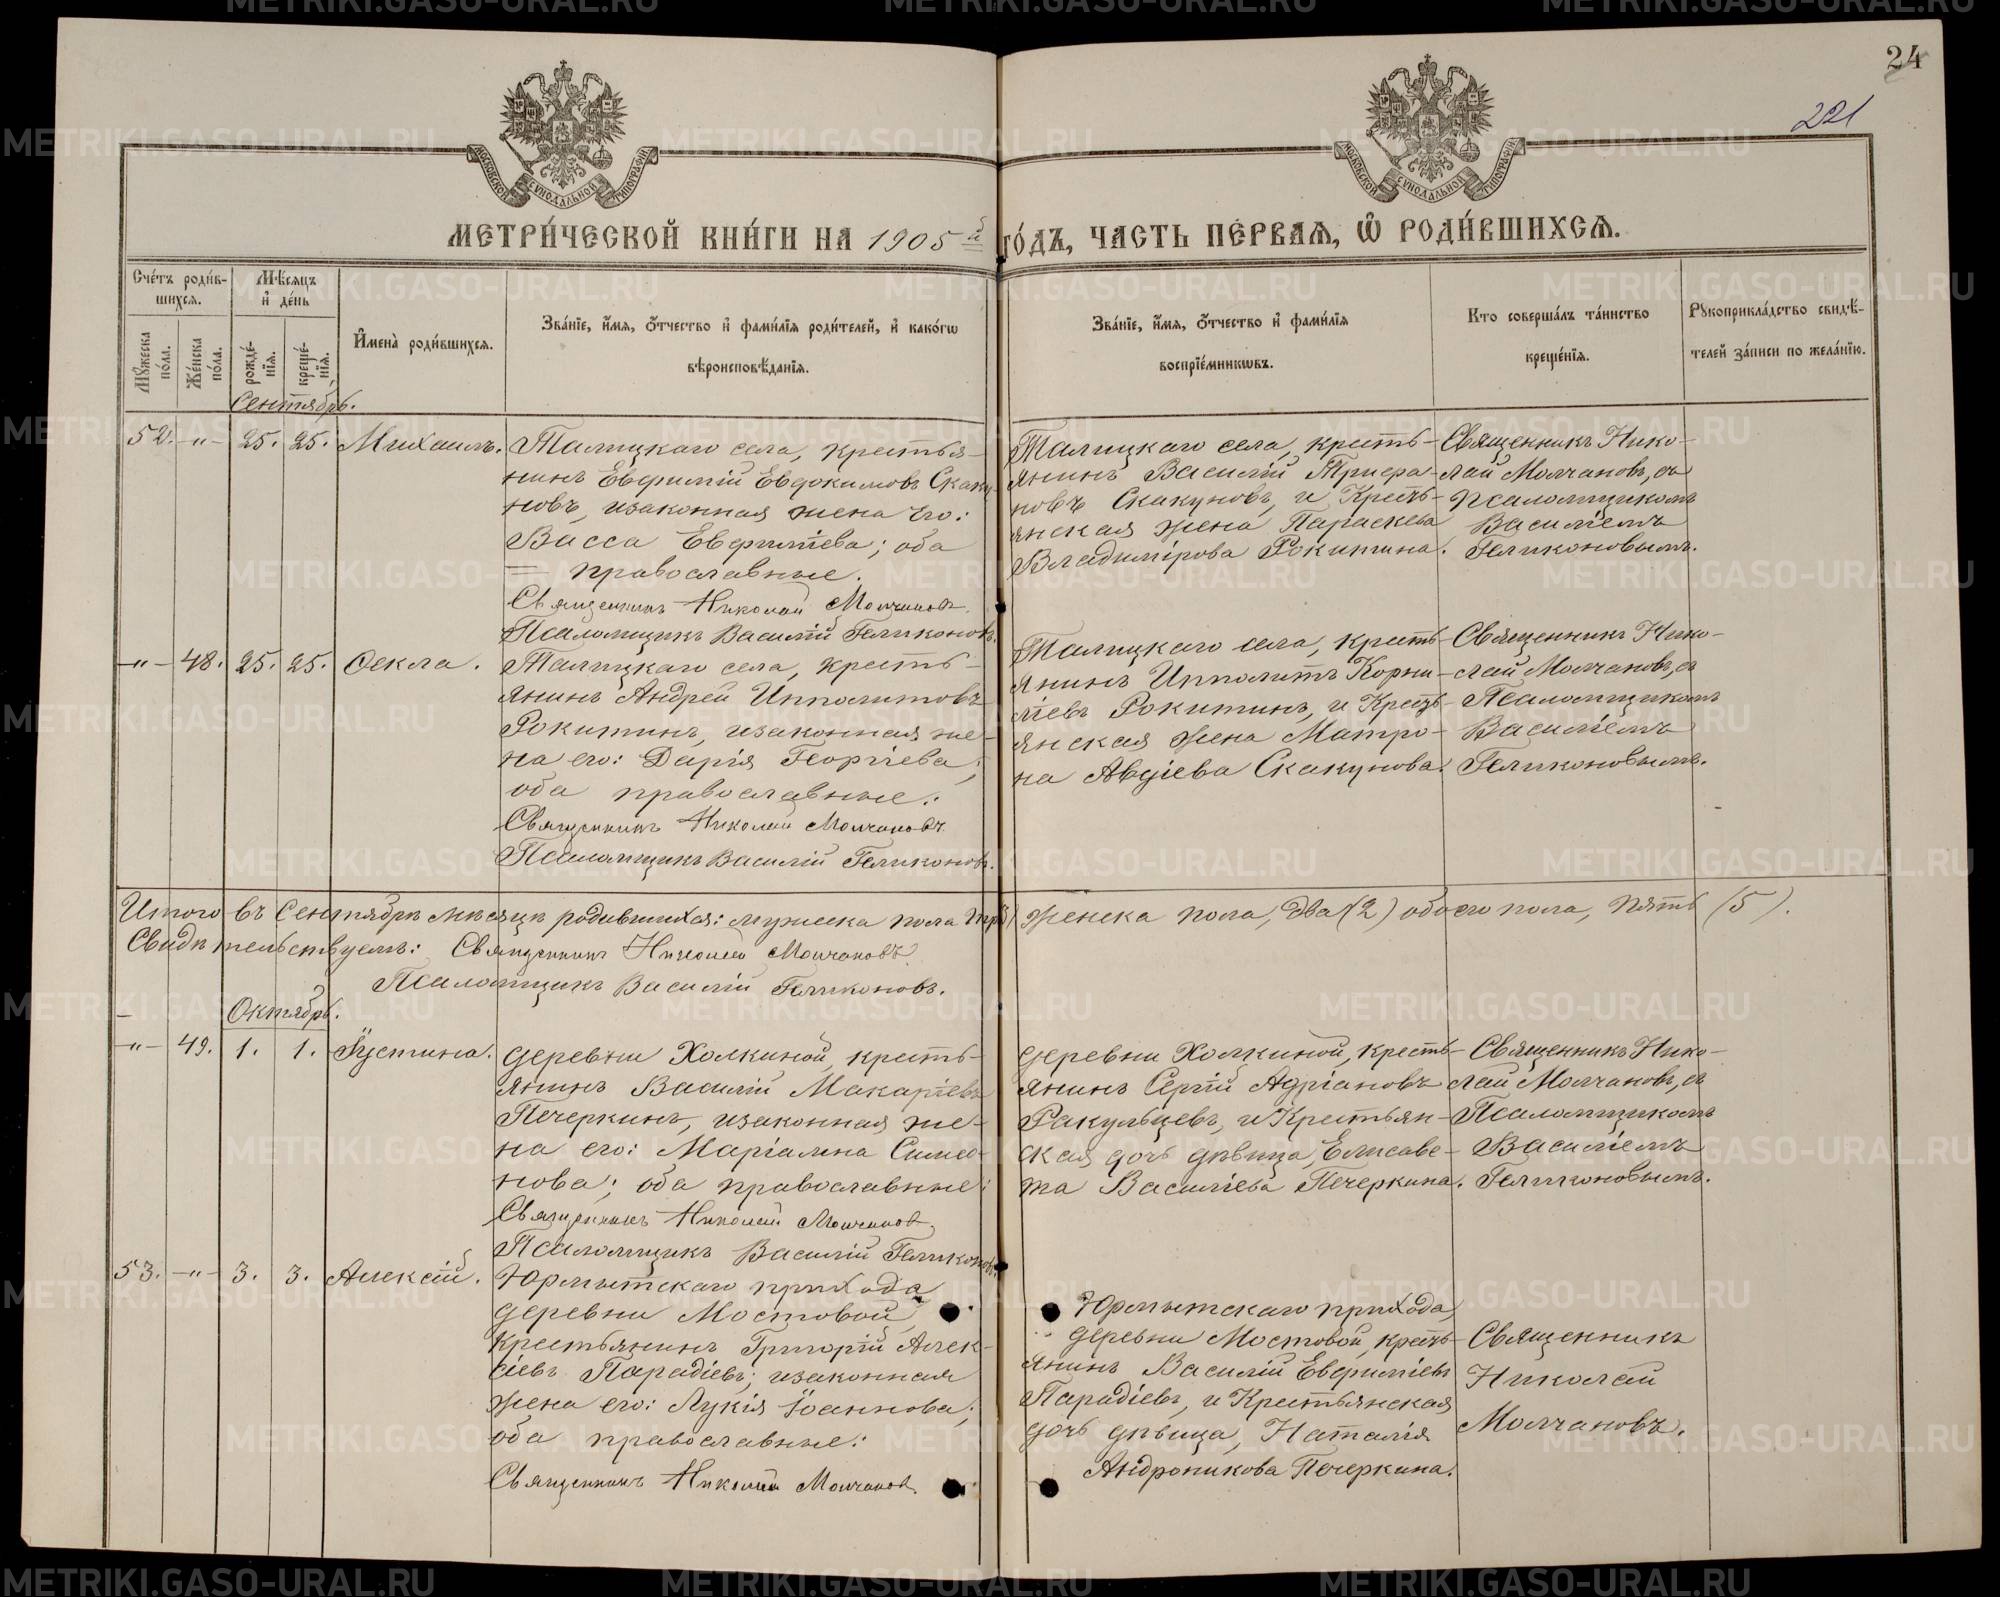 24
221
МОСКОВСКОЙ СѴНОДАЛЬНОЙ ТИПОГРАФІИ
МОСКОВСКОЙ СѴНОДАЛЬНОЙ ТИПОГРАФІИ
МЕТРИ́ЧЕСКОЙ КНИ́ГИ НА 1905й ГО́ДЪ, ЧАСТЬ ПЕ́РВАЯ, Ѡ РОДИ́ВШИХСЯ.
Сче́тъ роди́в-
шихся.
Мѣ́сяцъ
и де́нь
Мꙋ́жеска по́ла.
Же́нска по́ла.
рожде́-
нїя.
креще́-
нїя.
Имена̀ роди́вшихся.
Зва́нїе, и́мя, о́тчество и фами́лїя роди́телей, и како́гѡ
вѣроисповѣ́данїя.
Зва́нїе, и́мя, о́тчество и фами́лїя
воспрїе́мникѡвъ.
Кто соверша́лъ та́инство
креще́нїя.
Рꙋкоприкла́дство свидѣ́-
телей за́писи по жела́нїю.
Сентябрь.
52. -„- 25. 25. Михаилъ.
Талицкаго села, крестья-
нинъ Евфимій Евдокимовъ Скаку-
новъ, изаконная жена его:
Васса Евфиміева; оба
= православные.
Священникъ Николай Молчановъ.
Псаломщикъ Василій Геликоновъ.
Талицкаго села, кресть-
янинъ Василій Трифа-
новъ Скакуновъ, и Кресть-
янская жена Параскева
Владимірова Рокитина.
Священникъ Нико-
лай Молчановъ, съ
Псаломщикомъ
Василіемъ
Геликоновымъ.
-„- 48. 25. 25. Ѳекла.
Талицкаго села, кресть-
янинъ Андрей Ипполитовъ
Рокитинъ, изаконная же-
на его: Дарія Георгіева;
оба православные.:
Священникъ Николай Молчановъ.
Псаломщикъ Василій Геликоновъ.
Талицкаго села, кресть-
янинъ Ипполитъ Корни-
ліевъ Рокитинъ, и Кресть-
янская жена Матро-
на Авдіева Скакунова.
Священникъ Нико-
лай Молчановъ, съ
Псаломщикомъ
Василіемъ
Геликоновымъ.
Итого въ Сентябрѣ мѣсяцѣ родившихся: мужеска пола три женска пола, два (2) обоего пола, пять (5).
Свидѣтельствуемъ: Священникъ Николай Молчановъ.
Псаломщикъ Василій Геликоновъ.
Октябрь.
-„- 49. 1. 1. Іустина.
деревни Холкиной, кресть-
янинъ Василій Макаріевъ
Печеркинъ, изаконная же-
на его: Маріамна Симео-
нова; оба православные:
Священникъ Николай Молчановъ.
Псаломщикъ Василій Геликоновъ.
деревни Холкиной, кресть-
янинъ Сергій Адріановъ
Ракульцевъ, и Крестьян-
ская дочь дѣвица, Елисаве-
та Василіева Печеркина.
Священникъ Нико-
лай Молчановъ, съ
Псаломщикомъ
Василіемъ
Геликоновымъ.
53. -„- 3. 3. Алексій.
Юрмытскаго прихода
деревни Мостовой,
крестьянинъ Григорій Алек-
сіевъ Парадіевъ; изаконная
жена его: Лукія Іоаннова;
оба православные:
Священникъ Николай Молчановъ.
Юрмытскаго прихода,
деревни Мостовой, кресть-
янинъ Василій Евфиміевъ
Парадіевъ, и Крестьянская
дочь дѣвица, Наталія
Андроникова Печеркина.
Священникъ
Николай
Молчановъ.
METRIKI.GASO-URAL.RU